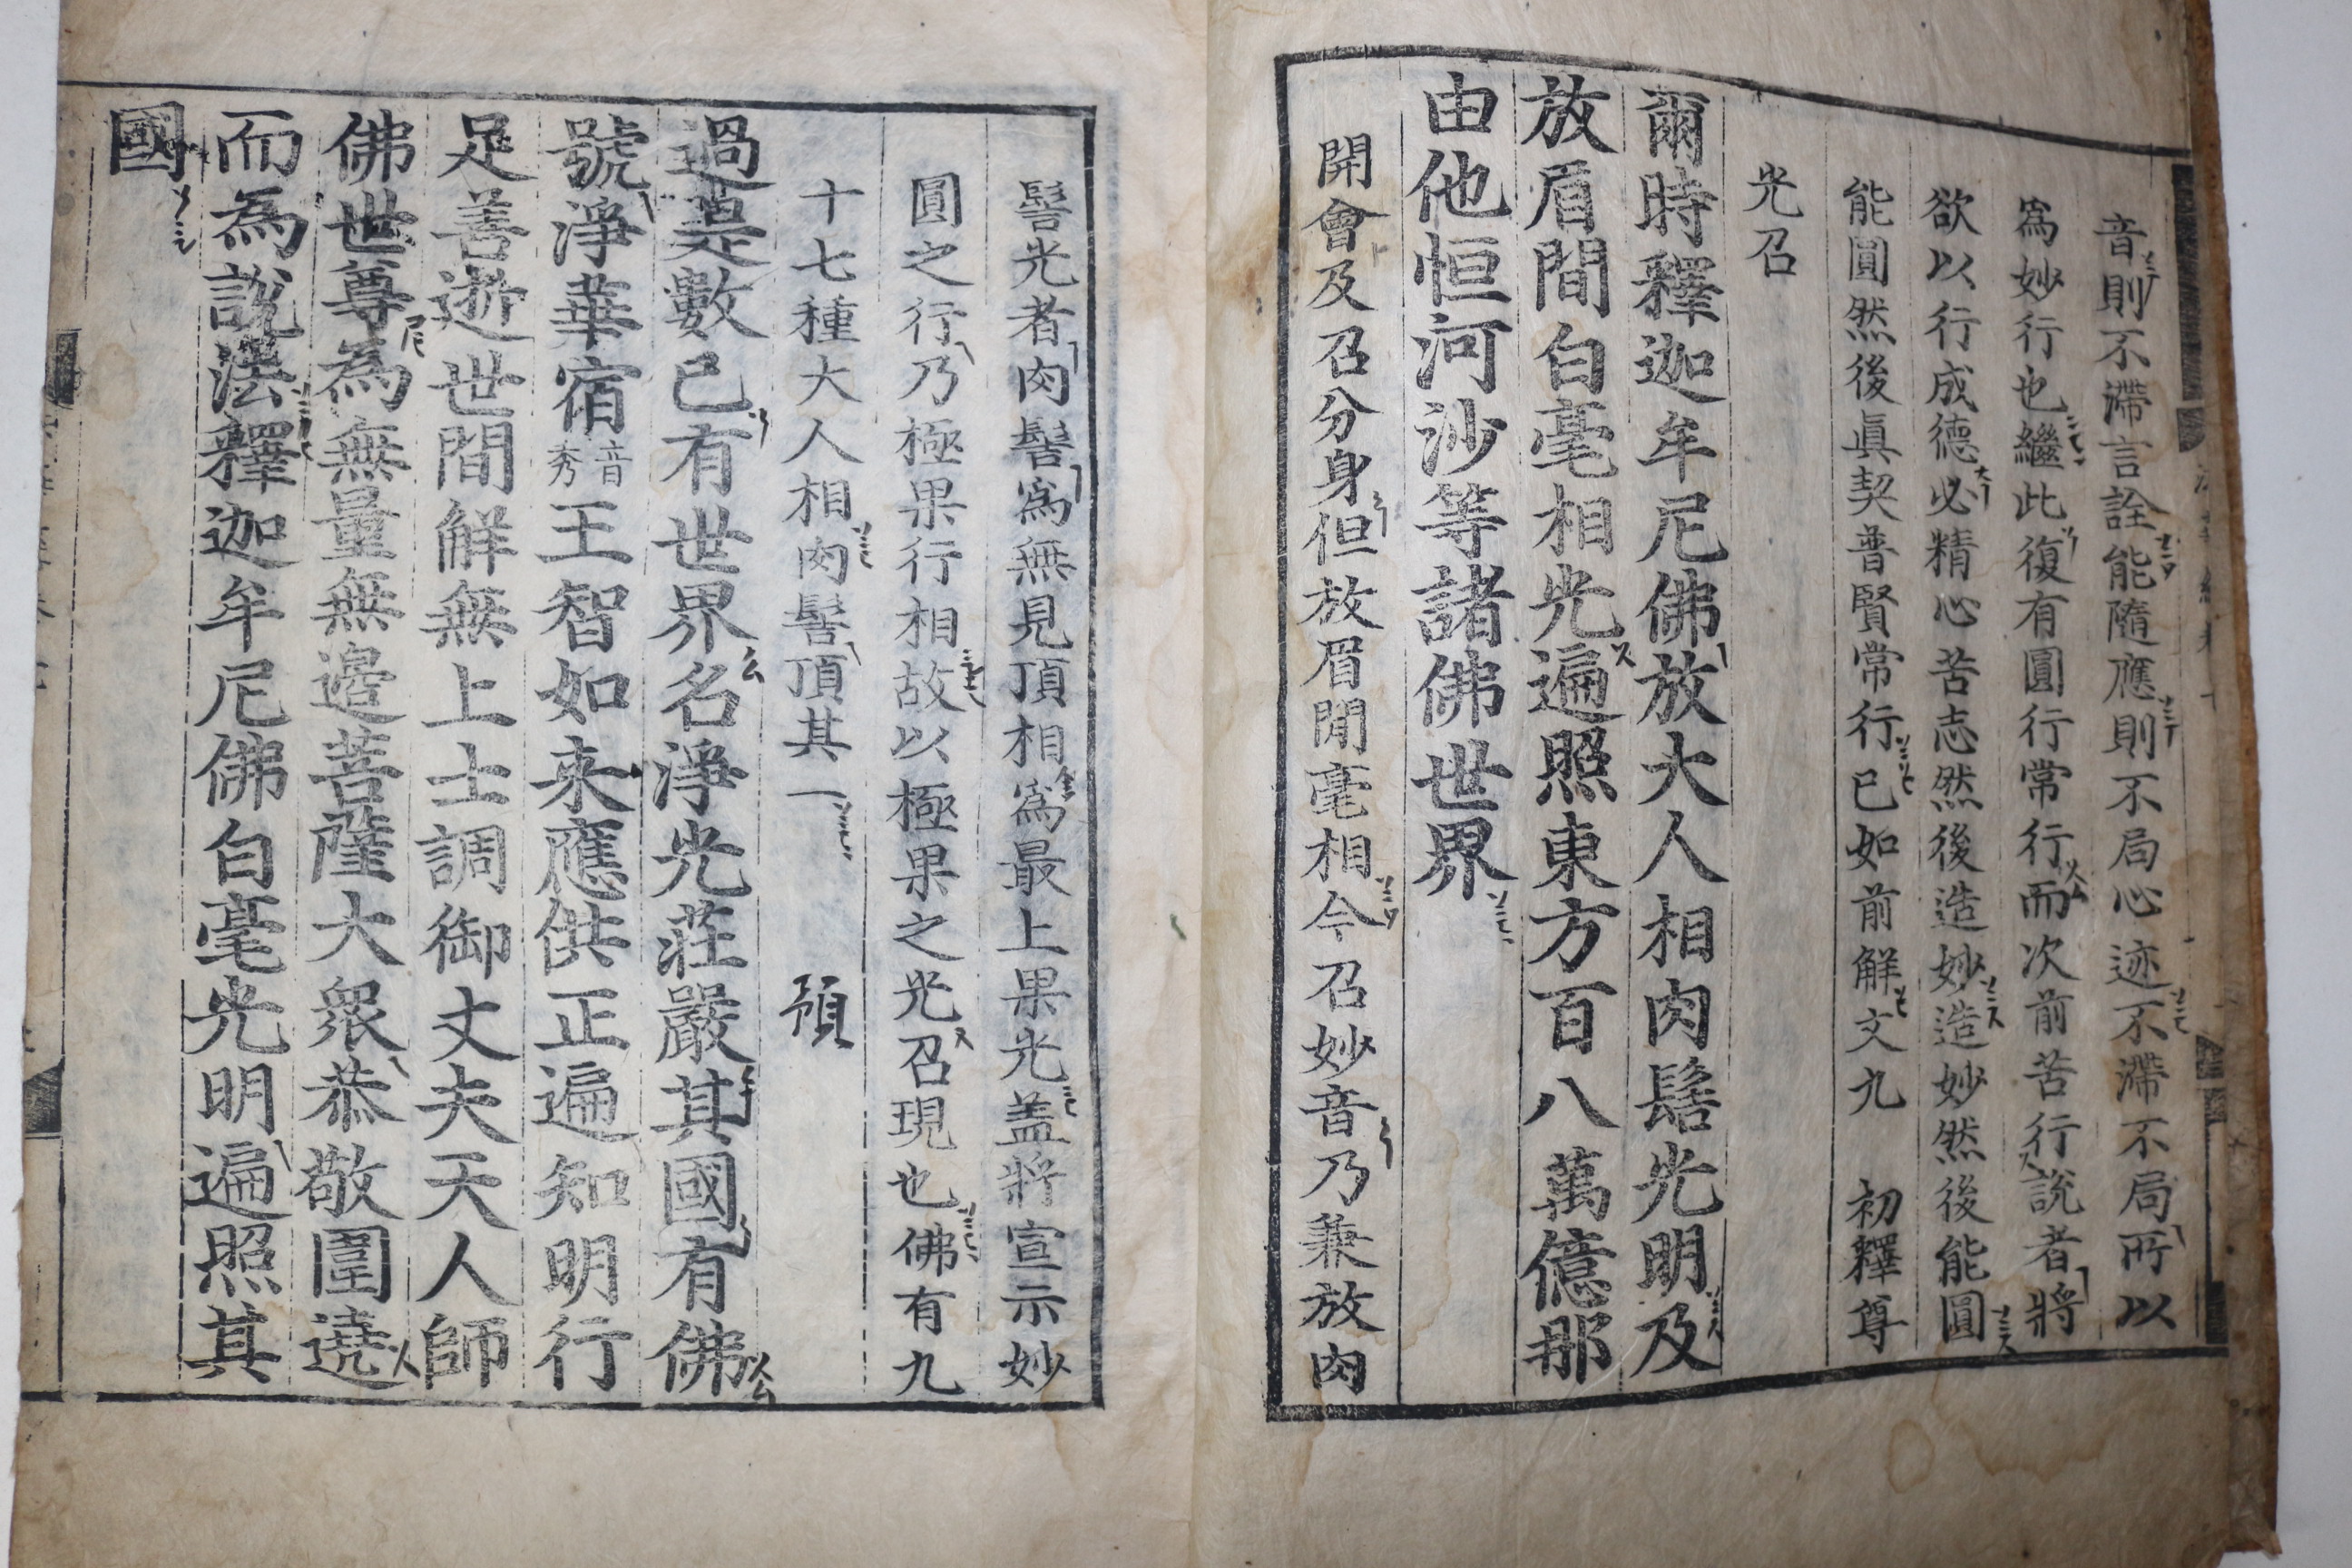 音則不滯言詮能隨應則不局心迹不滯不局所以
爲妙行也繼此復有圓行常行而次前苦行說者將
欲以行成德必精心苦志然後造妙造妙然後能圓
能圓然後眞契普賢常行已如前解文九 初釋尊
光召
爾時釋迦牟尼佛放大人相肉髻光明及
放眉間白毫相光遍照東方百八萬億那
由他恒河沙等諸佛世界
開會及召分身但放眉間毫相今召妙音乃兼放肉
髻光者肉髻爲無見頂相爲最上果光盖將宣示妙
圓之行乃極果行相故以極果之光召現也佛有九
十七種大人相肉髻頂其一 預
過是數已有世界名淨光莊嚴其國有佛
號淨華宿音秀王智如来應供正遍知明行
足善逝世間解無上士調御丈夫天人師
佛世尊為無量無邊菩薩大衆恭敬圍遶
而為說法釋迦牟尼佛白毫光明遍照其
國